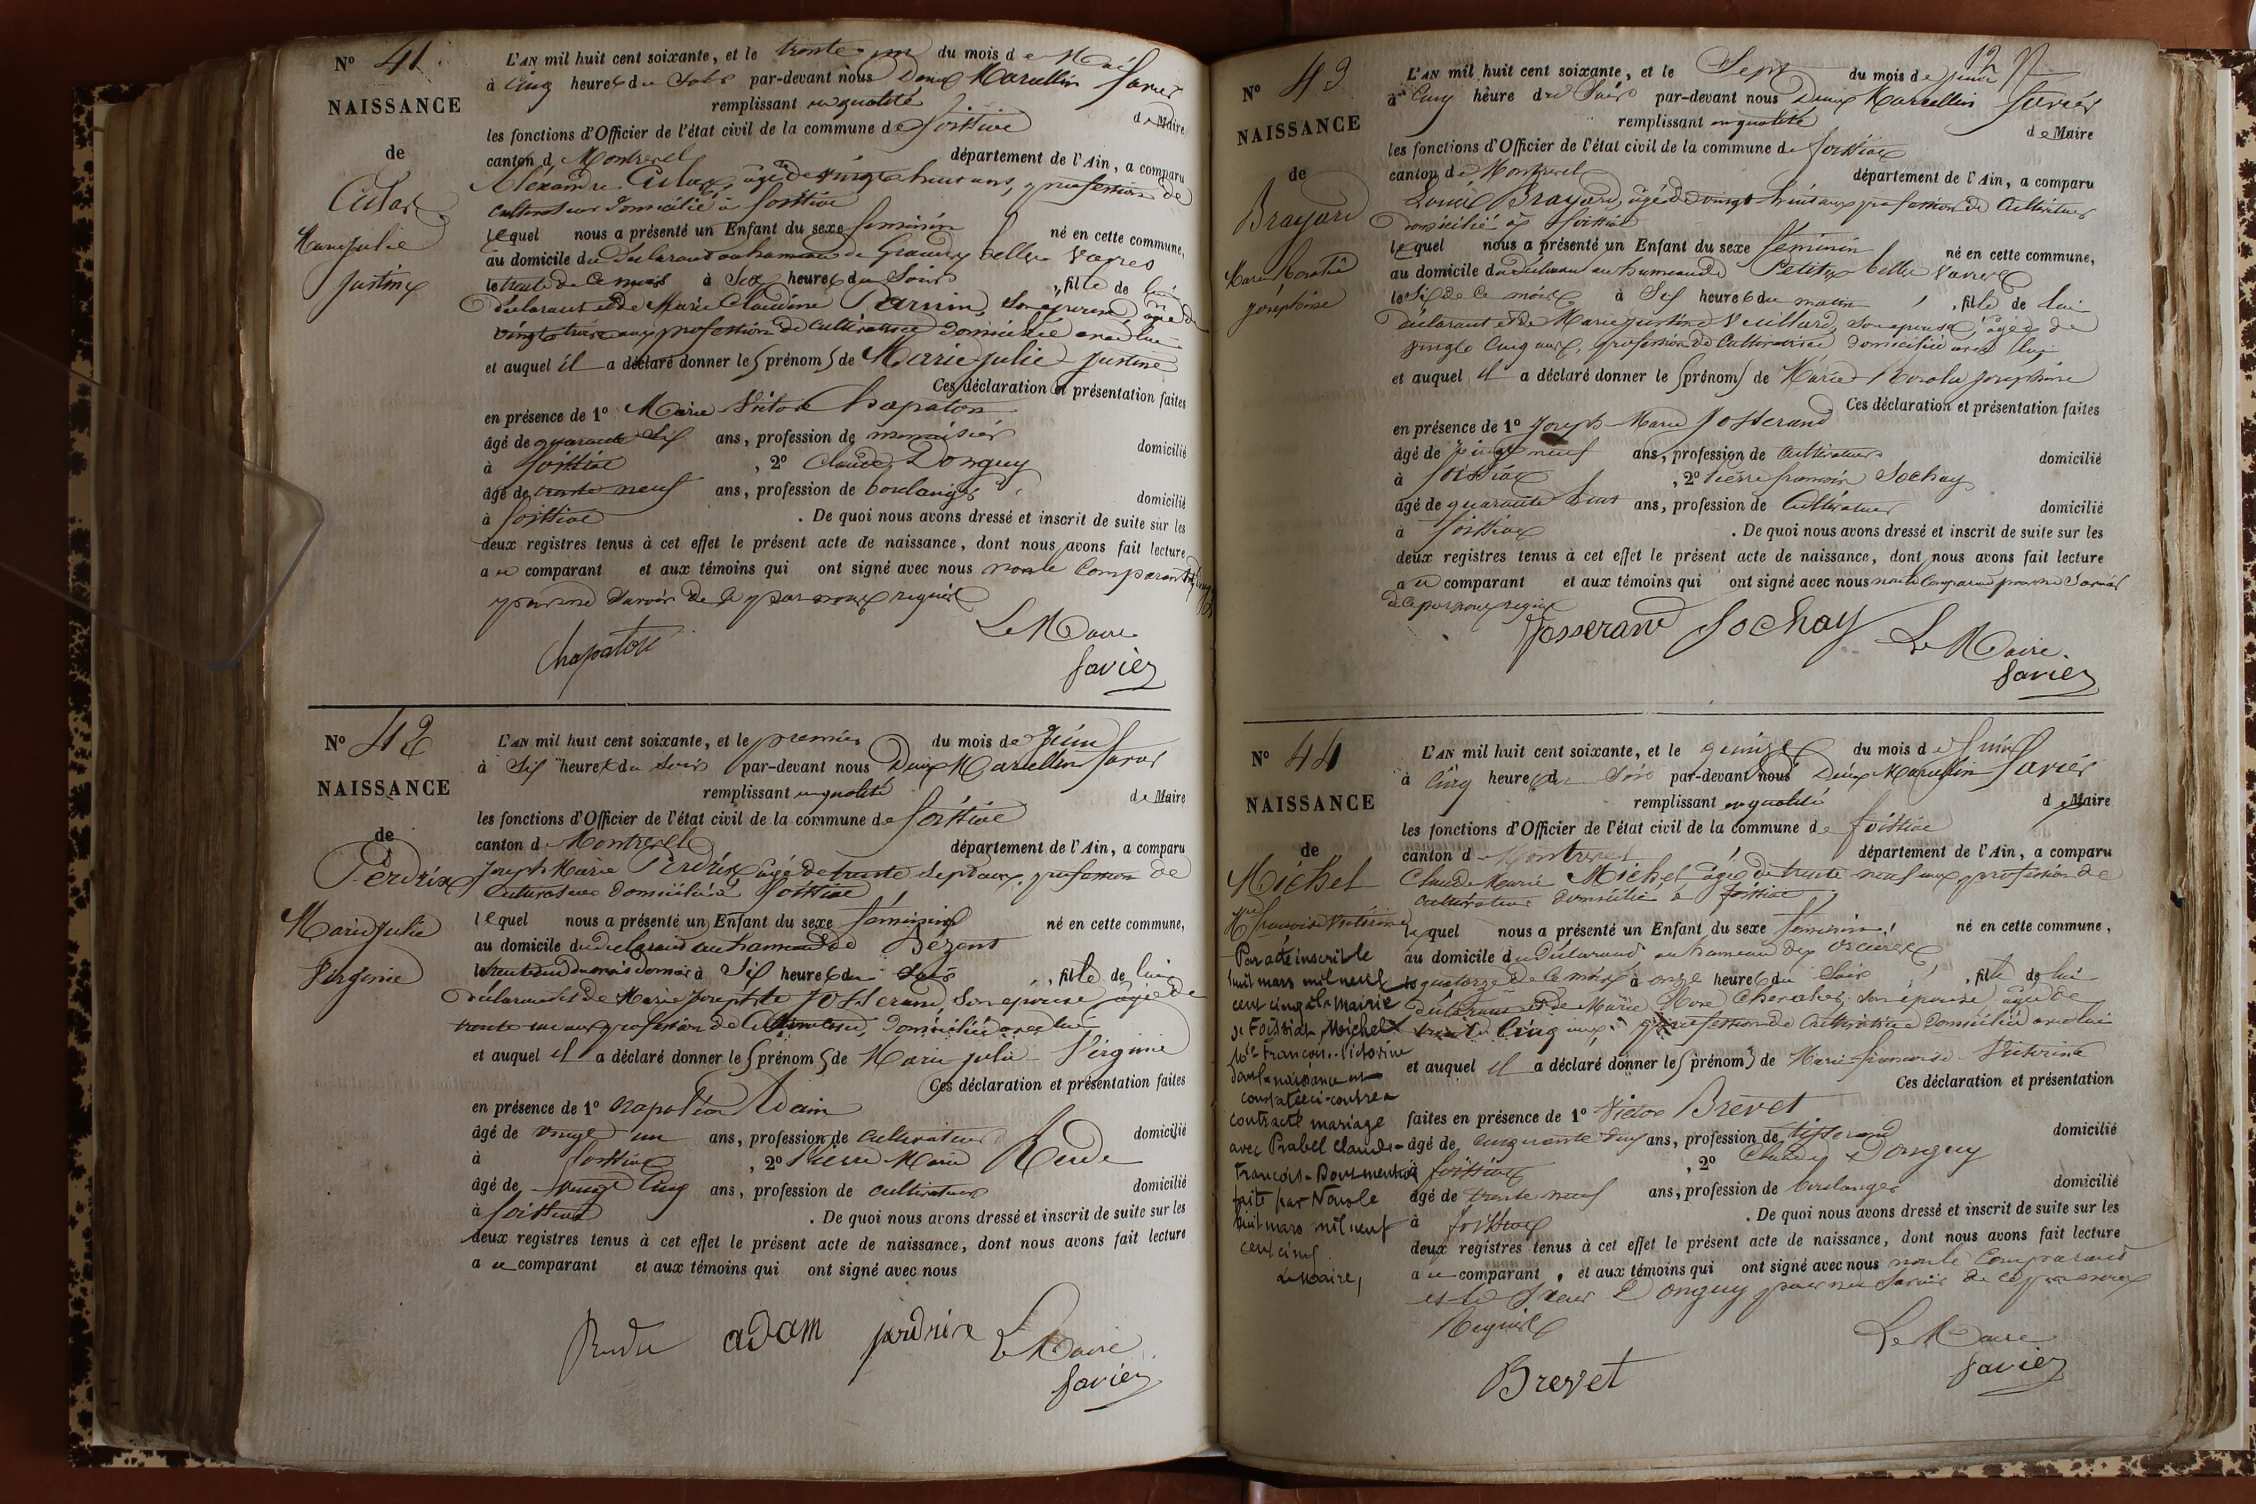 N° 41.
NAISSANCE
de
Marie Julie
Justine
L'AN mil huit cent soixante, et le trente un du mois de Mai
à cinq heures du Soir par-devant nous Marcellin Savier
remplissant en qualité
de Maire
les fonctions d'Officier de l'état civil de la commune de foissiat
canton d Montrevel département de l'Ain, a comparu
Alexandre âgé de vingt huit ans, profession de
cultivateur domicilié à foissiat
lequel nous a présenté un Enfant du sexe féminin né en cette commune,
au domicile du déclarant au hameau de
le trente de ce mois à Six heures du Soir , fille de lui
déclarant et de Marie Claudine son épouse, âgée de
vingt trois ans profession de cultivatrice domiciliée avec lui
et auquel il a déclaré donner les prénoms de Marie Julie Justine
Ces déclaration et présentation faites
en présence de 1° Marie Victor Chapaton
âgé de quarante Six ans, profession de menuisier domicilié
à foissiat , 2° Claude Donguy
âgé de trente neuf ans, profession de boulanger domicilié
à foissiat . De quoi nous avons dressé et inscrit de suite sur les
deux registres tenus à cet effet le présent acte de naissance, dont nous avons fait lecture
au comparant et aux témoins qui ont signé avec nous non le comparant
pour ne savoir de ce par nous requis
Le Maire
Chapaton
Savier
N° 42
NAISSANCE
de
Perdrix
Marie Julie
Virginie
L'AN mil huit cent soixante, et le premier du mois de Juin
à Six heures du Soir par-devant nous Marcellin Savier
remplissant en qualité
de Maire
les fonctions d'Officier de l'état civil de la commune de foissiat
canton d Montrevel département de l'Ain, a comparu
Joseph Marie Perdrix âgé de trente sept ans, profession de
cultivateur domicilié à foissiat
lequel nous a présenté un Enfant du sexe féminin né en cette commune,
au domicile du déclarant au hameau de
le trente un du mois dernier à Six heures du Soir , fille de lui
déclarant et de Marie Josephte Josserand, son épouse âgée de
trente un ans profession de Cultivatrice, domiciliée avec lui
et auquel il a déclaré donner les prénoms de Marie Julie Virginie
Ces déclaration et présentation faites
en présence de 1° Napoléon Adam
âgé de vingt un ans, profession de cultivateur domicilié
à foissiat , 2° Pierre Marie Rude
âgé de vingt cinq ans, profession de cultivateur domicilié
à foissiat . De quoi nous avons dressé et inscrit de suite sur les
deux registres tenus à cet effet le présent acte de naissance, dont nous avons fait lecture
au comparant et aux témoins qui ont signé avec nous
Rude adam perdrix Le Maire
Savier
12
N° 43
NAISSANCE
de
Brayard
Marie
joséphine
L'AN mil huit cent soixante, et le Sept du mois de juin
à Cinq heure du Soir par-devant nous Marcellin Savier
remplissant en qualité
de Maire
les fonctions d'Officier de l'état civil de la commune de foissiat
canton de Montrevel département de l'Ain, a comparu
Louis Brayard, âgé de vingt huit ans profession de Cultivateur
domicilié à foissiat
lequel nous a présenté un Enfant du sexe féminin né en cette commune,
au domicile du déclarant au hameau de
le Six de ce mois à Six heures du matin , fille de lui
déclarant et de Marie Justine Veuillard, son épouse âgée de
vingt Cinq ans, profession de Cultivatrice domiciliée avec lui
et auquel il a déclaré donner les prénoms de Marie joséphine
Ces déclaration et présentation faites
en présence de 1° Joseph Marie Josserand
âgé de vingt neuf ans, profession de cultivateur domicilié
à foissiat , 2° Pierre françois Sochay
âgé de quarante huit ans, profession de Cultivateur domicilié
à foissiat . De quoi nous avons dressé et inscrit de suite sur les
deux registres tenus à cet effet le présent acte de naissance, dont nous avons fait lecture
au comparant et aux témoins qui ont signé avec nous non le Comparant pour ne savoir
de ce par nous requis
Josserand Sochay Le Maire
Savier
N° 44
NAISSANCE
de
Michel
Mie françoise Victorine
Par acte inscrit le
huit mars mil neuf
cent cinq à la Mairie
de Foissiat, Michel
Mie Françoise Victorine
dont la naissance est
constatée ci-contre a
contracté mariage
avec Prabel Claude-
François. Dont mention
faite par Nous le
huit mars mil neuf
cent cinq.
Le Maire,
L'AN mil huit cent soixante, et le quinze du mois de Juin
à Cinq heures du Soir par-devant nous Marcellin Savier
remplissant en qualité
de Maire
les fonctions d'Officier de l'état civil de la commune de foissiat
canton d Montrevel département de l'Ain, a comparu
Claude Marie Michel âgé de trente neuf ans, profession de
cultivateur domicilié à foissiat
lequel nous a présenté un Enfant du sexe féminin né en cette commune,
au domicile du déclarant au hameau des
le quatorze de ce mois à onze heures du Soir , fille de lui
déclarant et de Marie Rose Chevalier, son épouse âgée de
trente Cinq ans, profession de Cultivatrice domiciliée avec lui
et auquel il a déclaré donner les prénoms de Marie françoise Victorine
Ces déclaration et présentation
faites en présence de 1° Victor Brevet
âgé de cinquante deux ans, profession de tisserand domicilié
à foissiat , 2° Claude Donguy
âgé de trente neuf ans, profession de boulanger domicilié
à foissiat . De quoi nous avons dressé et inscrit de suite sur les
deux registres tenus à cet effet le présent acte de naissance, dont nous avons fait lecture
au comparant, et aux témoins qui ont signé avec nous non le Comparant
et le Sieur Donguy pour ne savoir de ce par nous
Requis
Le Maire
Brevet
Savier